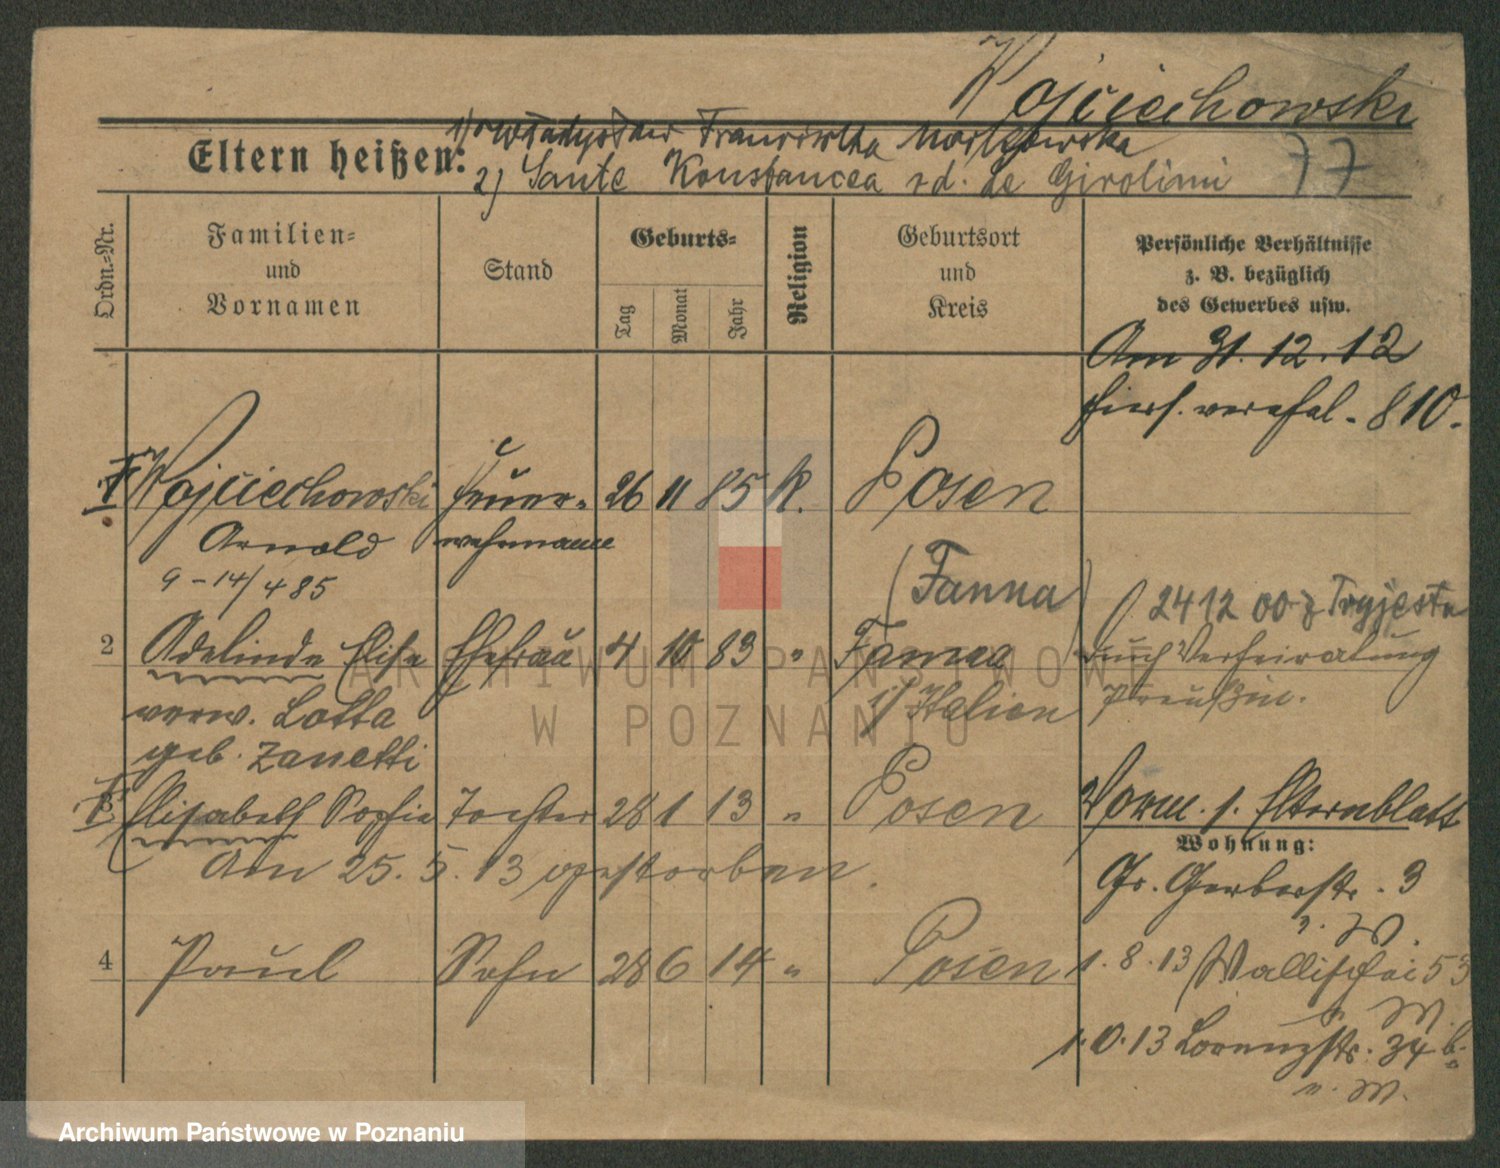 Wojciechowski
Eltern heißen: 1) Władysław Franciszka
2) Sante Konstancea de Girolimi 77
Ordn.-Nr.
Familien-
und
Vornamen
Stand
Geburts-
Tag
Monat
Jahr
Religion
Geburtsort
und
Kreis
Persönliche Verhältnisse
z. B. bezüglich
des Gewerbes usw.
Am 31.12.12
hiers. verehel. 810.
1 Wojciechowski Feuer- 26 11 85 K. Posen
Arnold wehrmann
9-14/4 85
(Fanna)
2412 00 z Tryjestu
2 Adelinde Elise Ehefrau 4 10 83 " Fanna durch Verheiratung
verw. Lotta i/Italien Preußin.
geb. Zanetti
3 Elisabeth Sophie Tochter 28 1 13 " Posen Vorm. s. Elternblatt
Am 25. 5. 13 gestorben.
Wohnung:
Gr. Gerberstr. 3
4 Paul Sohn 28 6 14 " Posen 1.8.13 Wallischei 53
1.O.13 Lorenzstr. 34 b.
ARCHIWUM PAŃSTWOWE
W POZNANIU
Archiwum Państwowe w Poznaniu